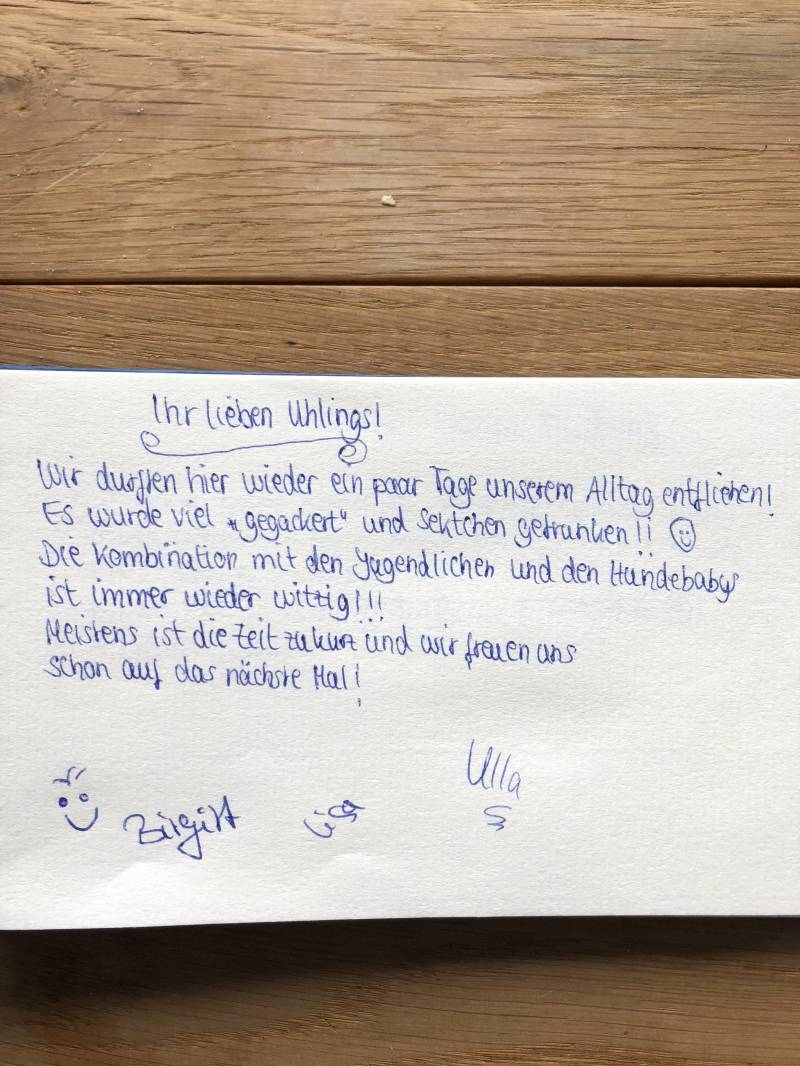 Ihr lieben Uhlings!
Wir durften hier wieder ein paar Tage unserem Alltag entfliehen!
Es wurde viel „gegackert" und Sektchen getrunken!!
Die Kombination mit den Jugendlichen und den Hundebabys
ist immer wieder witzig!!!
Meistens ist die Zeit zu kurz und wir freuen uns
schon auf das nächste Mal!
Ulla
Birgitt